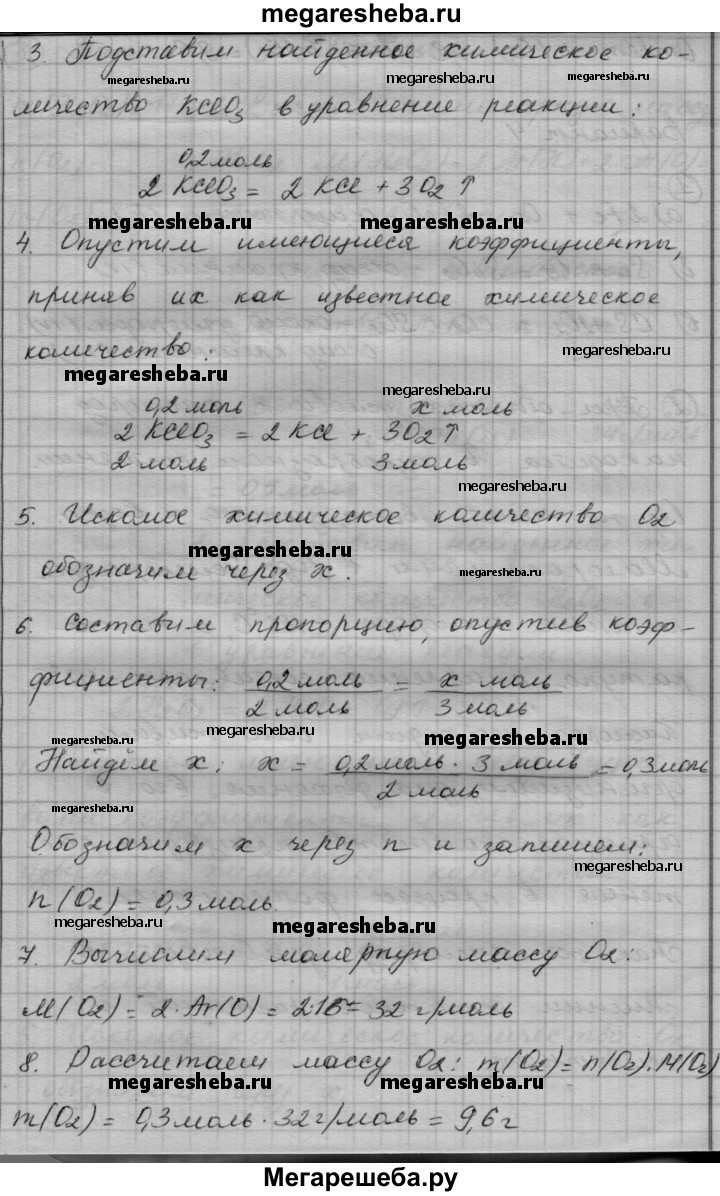 megaresheba.ru
3. Подставим найденное химическое ко-
megaresheba.ru megaresheba.ru megaresheba.ru
личество KClO3 в уравнение реакции:
0,2 моль
2 KClO3 = 2 KCl + 3O2↑
megaresheba.ru megaresheba.ru
4. Опустим имеющиеся коэффициенты,
приняв их как известное химическое
количество:
megaresheba.ru
megaresheba.ru
megaresheba.ru
0,2 моль x моль
2 KClO3 = 2 KCl + 3O2↑
2 моль 3 моль
megaresheba.ru
5. Искомое химическое количество O2
megaresheba.ru
обозначим через x.
megaresheba.ru
6. Составим пропорцию, опустив коэф-
фициенты: 0,2 моль / 2 моль = x моль / 3 моль
megaresheba.ru megaresheba.ru megaresheba.ru
Найдём x: x = 0,2 моль · 3 моль / 2 моль = 0,3 моль
megaresheba.ru
Обозначим x через n и запишем:
megaresheba.ru
n(O2) = 0,3 моль.
megaresheba.ru megaresheba.ru
7. Вычислим молярную массу O2:
M(O2) = 2·Ar(O) = 2·16 = 32 г/моль
8. Рассчитаем массу O2: m(O2) = n(O2)·M(O2)
megaresheba.ru megaresheba.ru
m(O2) = 0,3 моль · 32 г/моль = 9,6 г
Мегарешеба.ру